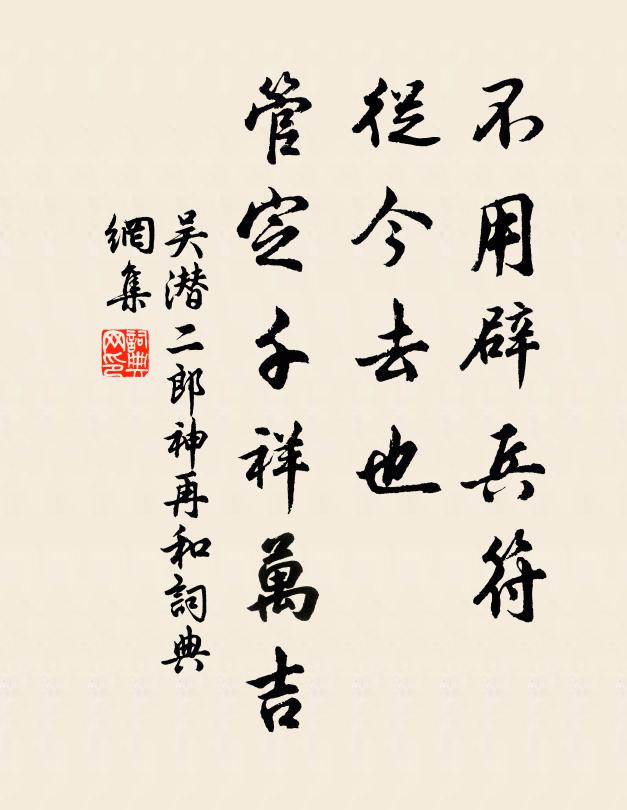 不用辟兵符
從今去也
管定千祥萬吉
吴潜二郎神再和詞典
網集
詞典网印